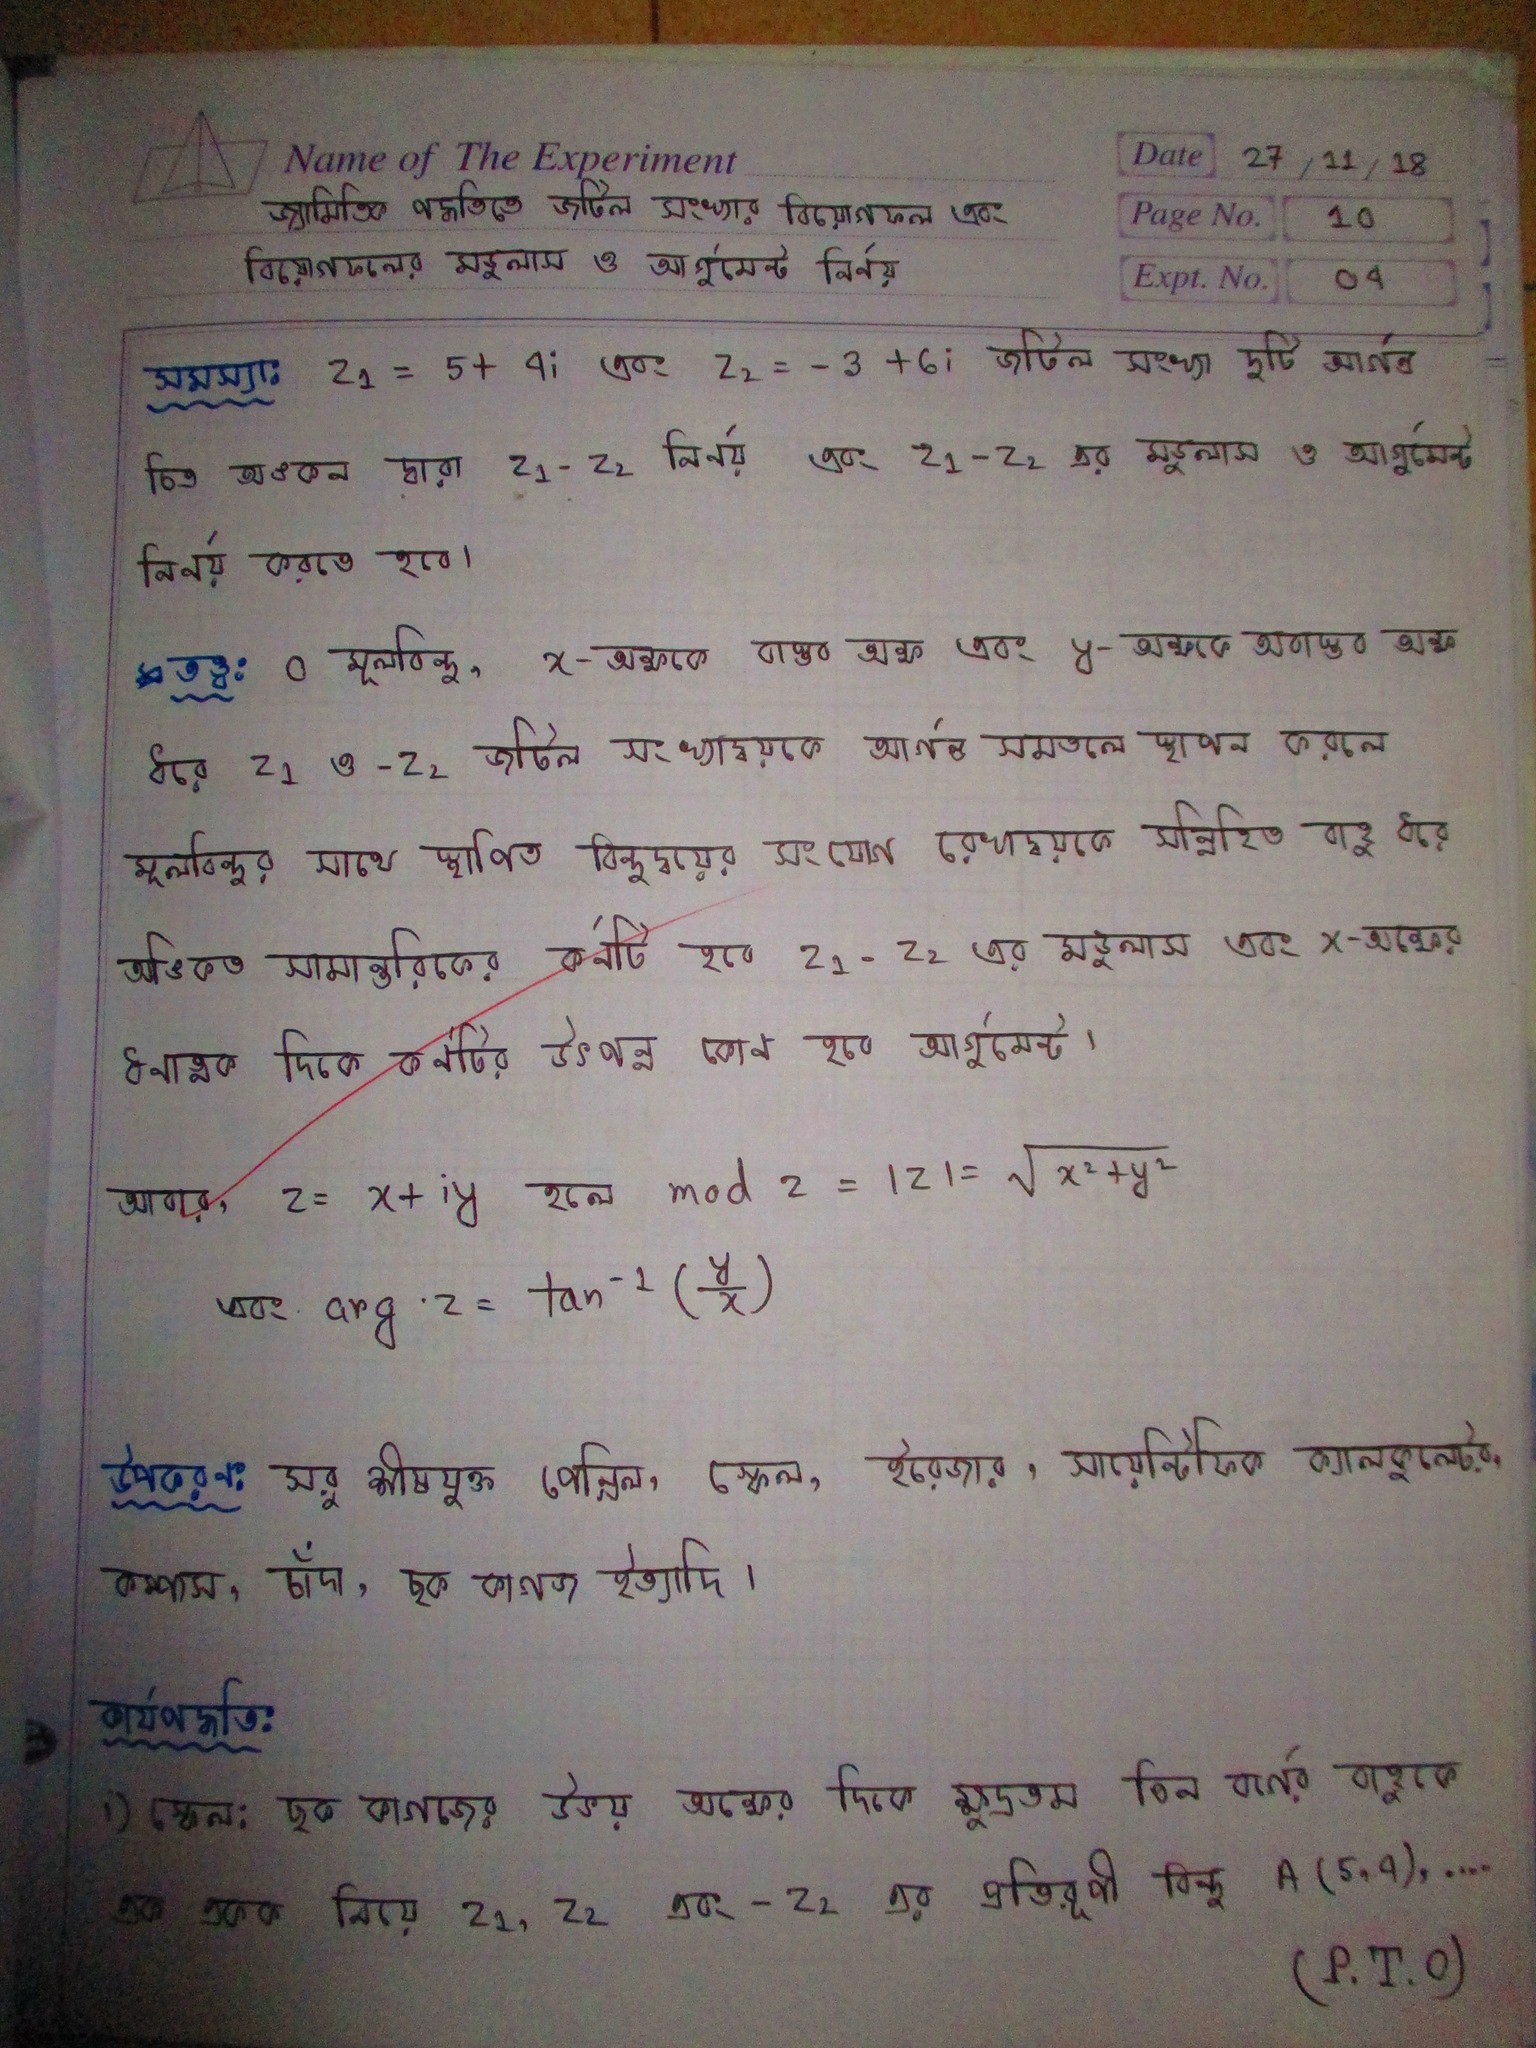 Name of The Experiment
Date 27/11/18
জ্যামিতিক পদ্ধতিতে জটিল সংখ্যার বিয়োগফল এবং
Page No. 10
বিয়োগফলের মডুলাস ও আর্গুমেন্ট নির্ণয়
Expt. No. 04
সমস্যাঃ z₁ = 5+ 4i এবং z₂ = -3 +6i জটিল সংখ্যা দুটি আর্গন্ড
চিত্র অঙ্কন দ্বারা z₁-z₂ নির্ণয় এবং z₁-z₂ এর মডুলাস ও আর্গুমেন্ট
নির্ণয় করতে হবে।
তত্ত্বঃ O মূলবিন্দু, x-অক্ষকে বাস্তব অক্ষ এবং y-অক্ষকে অবাস্তব অক্ষ
ধরে z₁ ও -z₂ জটিল সংখ্যাদ্বয়কে আর্গন্ড সমতলে স্থাপন করলে
মূলবিন্দুর সাথে স্থাপিত বিন্দুদ্বয়ের সংযোগ রেখাদ্বয়কে সন্নিহিত বাহু ধরে
অঙ্কিত সামান্তরিকের কর্ণটি হবে z₁-z₂ এর মডুলাস এবং x-অক্ষের
ধনাত্মক দিকে কর্ণটির উৎপন্ন কোণ হবে আর্গুমেন্ট।
আবার, z= x+iy হলে mod z = |z|= √(x²+y²)
এবং arg.z = tan⁻¹(y/x)
উপকরণঃ সরু শীষযুক্ত পেন্সিল, স্কেল, ইরেজার, সায়েন্টিফিক ক্যালকুলেটর,
কম্পাস, চাঁদা, ছক কাগজ ইত্যাদি।
কার্যপদ্ধতিঃ
1) স্কেল: ছক কাগজের উভয় অক্ষের দিকে ক্ষুদ্রতম তিন বর্গের বাহুকে
এক একক নিয়ে z₁, z₂ এবং -z₂ এর প্রতিরূপী বিন্দু A(5,4),....
(P.T.O)